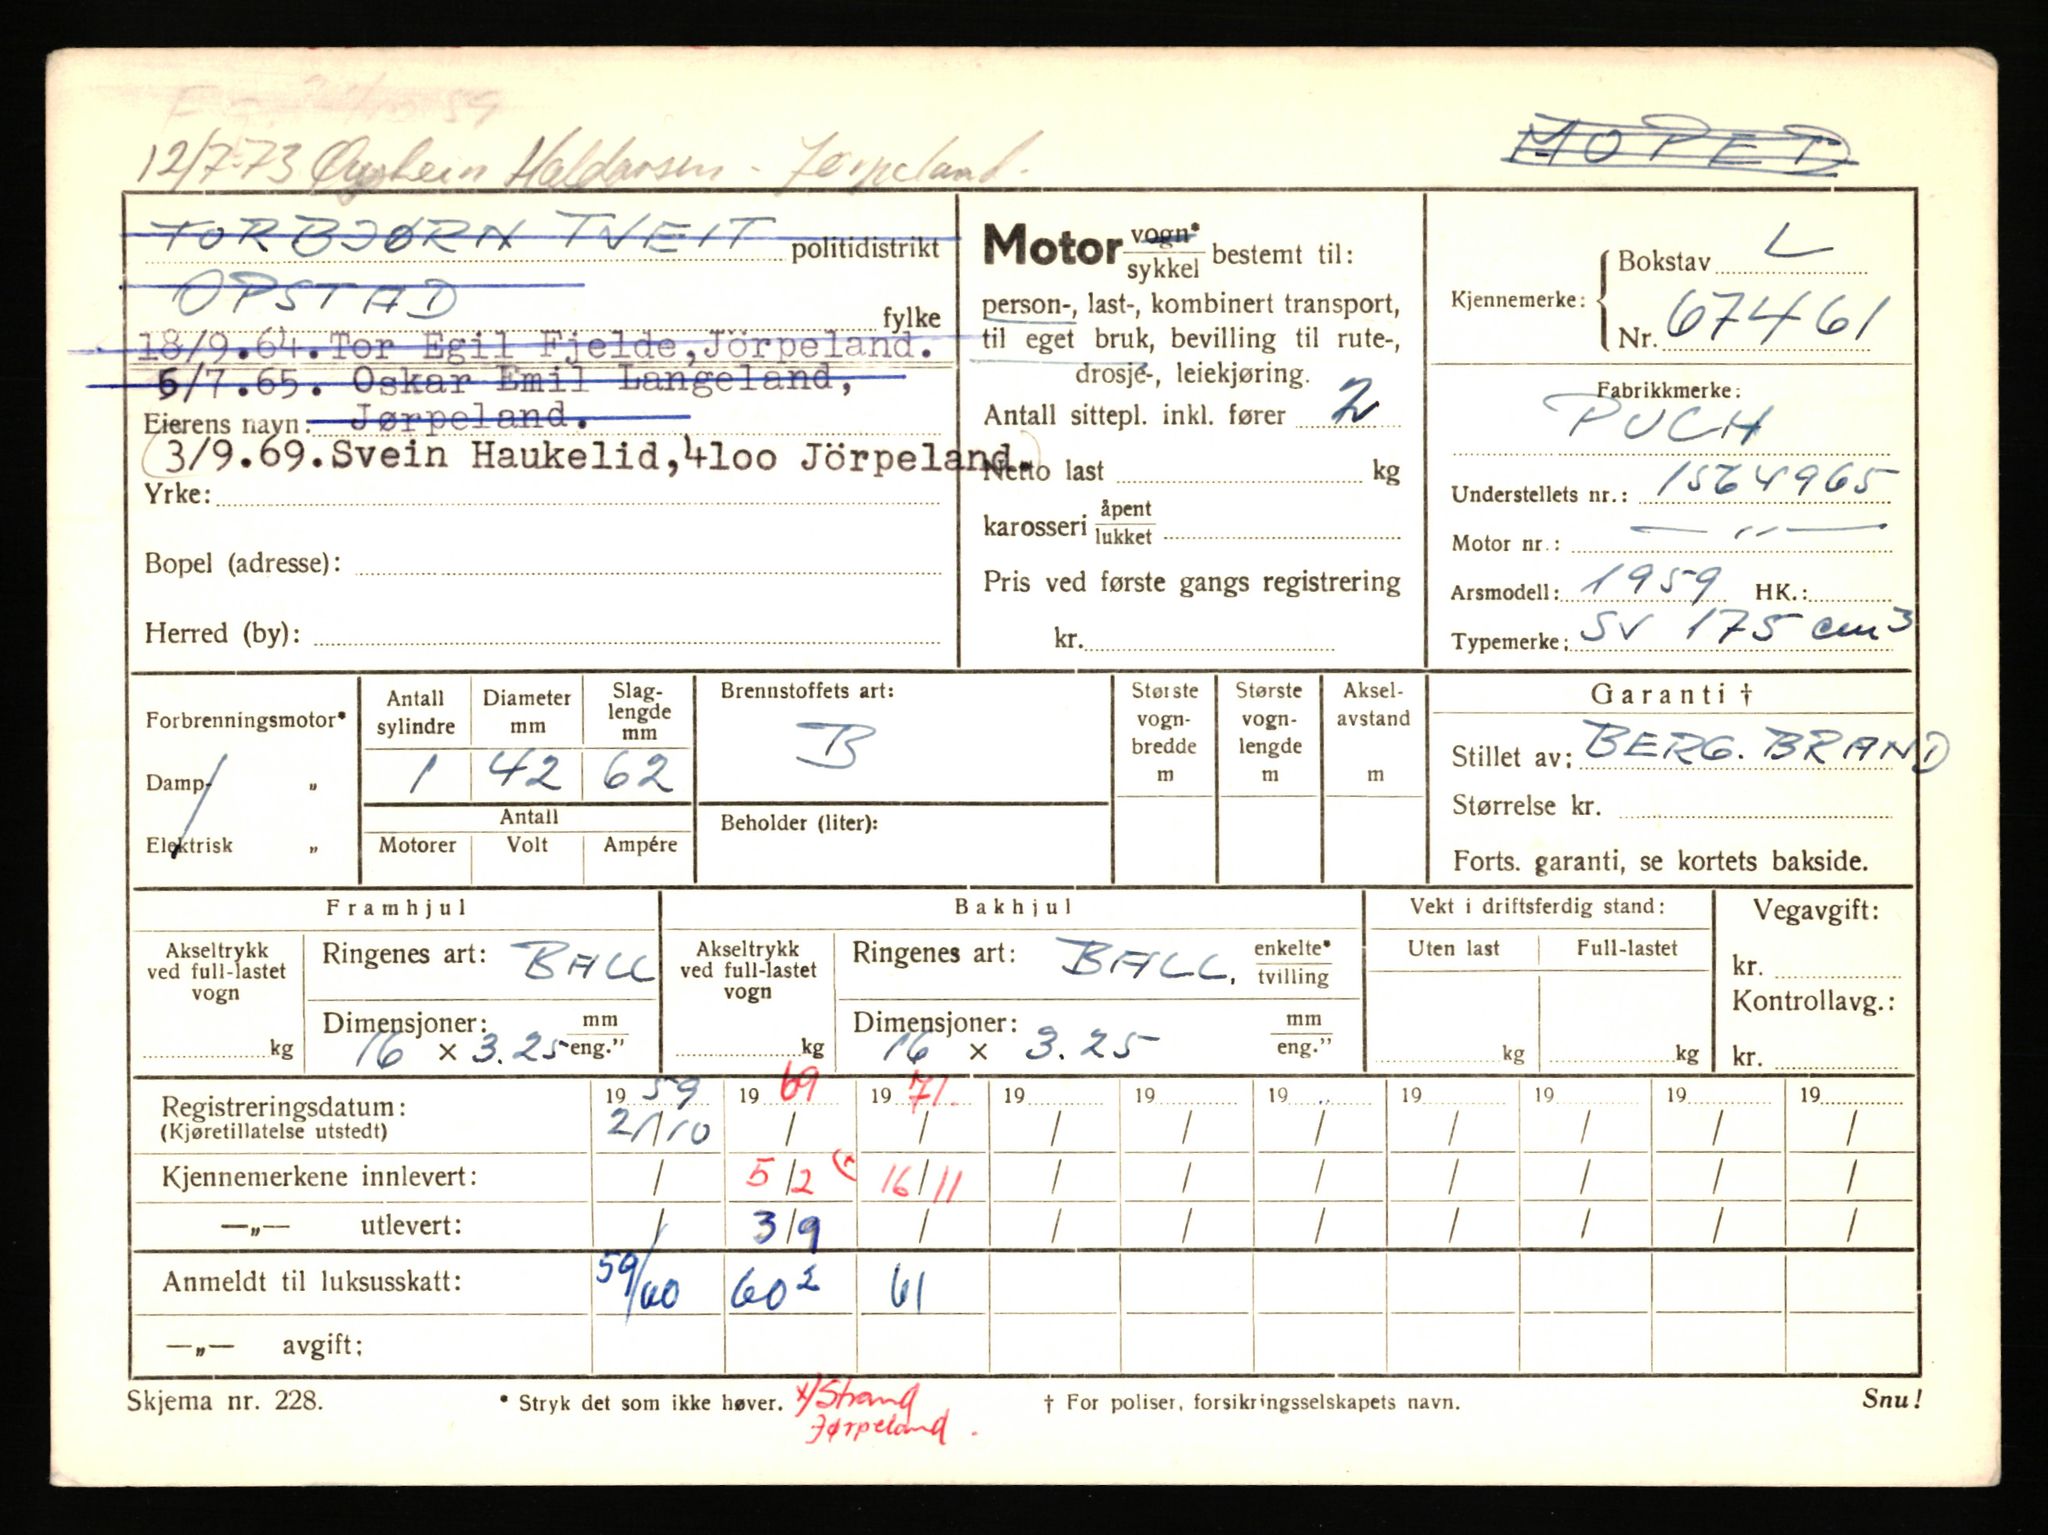 12/7-73 Øystein Haldorsen - Jørpeland.
MOPED
TORBJØRN TVEIT politidistrikt
OPSTAD fylke
18/9.64. Tor Egil Fjelde, Jörpeland.
6/7.65. Oskar Emil Langeland,
Eierens navn: Jørpeland.
(3/9.69. Svein Haukelid, 4100 Jörpeland.)
Yrke:
Bopel (adresse):
Herred (by):
Motor vogn* / sykkel bestemt til:
person-, last-, kombinert transport,
til eget bruk, bevilling til rute-,
drosje-, leiekjøring.
Antall sittepl. inkl. fører 2
Netto last kg
karosseri åpent / lukket
Pris ved første gangs registrering
kr.
Kjennemerke: Bokstav L
Nr. 67461
Fabrikkmerke:
PUCH
Understellets nr.: 1564965
Motor nr.: — " —
Arsmodell: 1959 HK.:
Typemerke: SV 175 cm3
Forbrenningsmotor*
Damp- „
Elektrisk „
Antall sylindre Diameter mm Slag-lengde mm
1 42 62
Antall
Motorer Volt Ampére
Brennstoffets art:
B
Beholder (liter):
Største vogn-bredde m
Største vogn-lengde m
Aksel-avstand m
Garanti †
Stillet av: BERG. BRAND
Størrelse kr.
Forts. garanti, se kortets bakside.
Framhjul
Akseltrykk ved full-lastet vogn
kg
Ringenes art: BALL
Dimensjoner: mm / eng."
16 x 3.25
Bakhjul
Akseltrykk ved full-lastet vogn
kg
Ringenes art: BALL. enkelte* / tvilling
Dimensjoner: mm / eng."
16 x 3.25
Vekt i driftsferdig stand:
Uten last Full-lastet
kg kg
Vegavgift:
kr.
Kontrollavg.:
kr.
Registreringsdatum: 19 59 19 69 19 71. 19 19 19 19 19 19 19
(Kjøretillatelse utstedt) 21/10 / / / / / / / / /
Kjennemerkene innlevert: / 5/2 (x 16/11 / / / / / / /
—„— utlevert: / 3/9 / / / / / / / /
Anmeldt til luksusskatt: 59/60 60 2 61
—„— avgift:
Skjema nr. 228. * Stryk det som ikke høver. x/ Strand † For poliser, forsikringsselskapets navn. Snu!
Jørpeland.